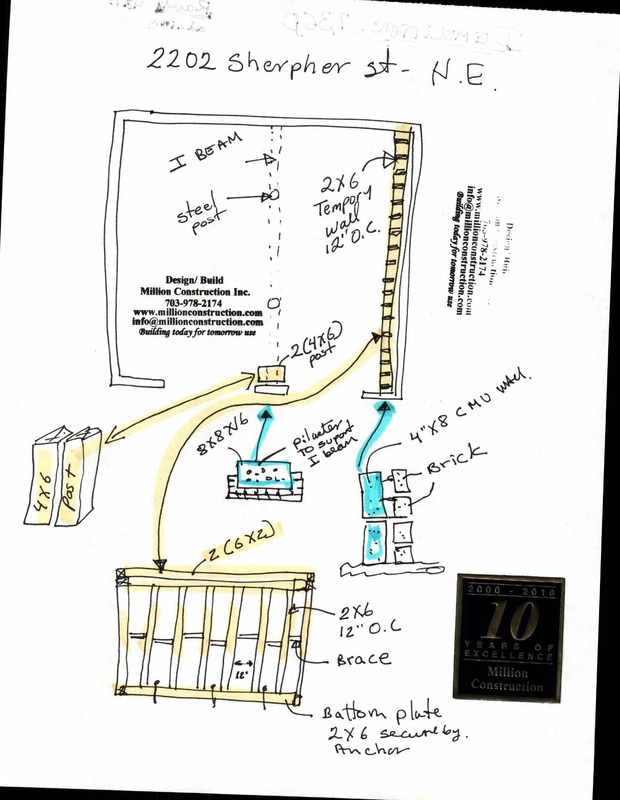 2202 Sherpher st- N.E.
I BEAM
steel
post
2X6
Tempory
wall
12" O.C.
Design/ Build
Million Construction Inc.
703-978-2174
www.millionconstruction.com
info@millionconstruction.com
Building today for tomorrow use
www.millionconstruction.com
info@millionconstruction.com
Building today for tomorrow use
2(4X6)
post
8X8X16
pilaster
TO suport
I beam
4"X8 CMU WALL
Brick
4X6
Post
2(6X2)
2X6
12" O.C
Brace
12"
Battom plate
2X6 secure by.
Anchor
2000 - 2010
10
YEARS OF
EXCELLENCE
Million
Construction